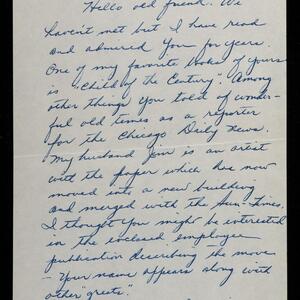 Hello old friend. We
haven't met but I have read
and admired you for years.
One of my favorite books of yours
is "Child of the Century". Among
other things you told of wonder-
ful old times as a reporter
for the Chicago Daily News.
My husband Jim is an artist
with the paper which has now
moved into a new building
and merged with the Sun-Times.
I thought you might be interested
in the enclosed employee
publication describing the move
- Your name appears along with
other "greats."